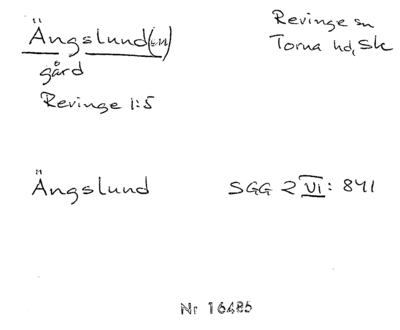 Ängslund(en)
gård
Revinge 1:5
Revinge sn
Torna hd, Sk
Ängslund
SGG 2 VI: 841
Nr 16485